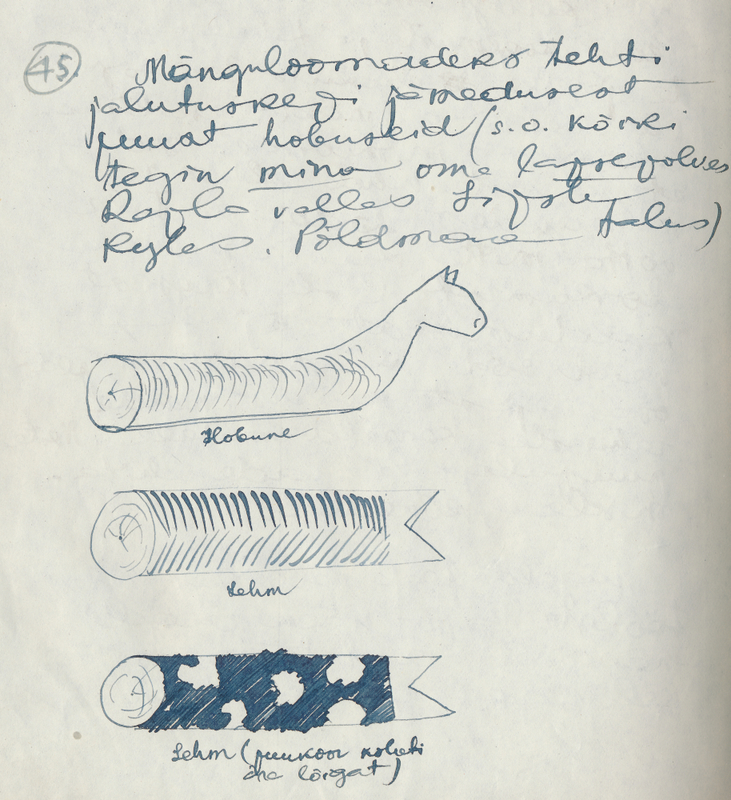 45.
Mänguloomadeks tehti
jalutuskepi jämedusest
puust hobuseid (s.o. kõiki
tegin mina oma lapsepõlves
Rapla vallas talus)
Põldmaa
Hobune
Lehm
Lehm (puukoor kohati
ära lõigat)